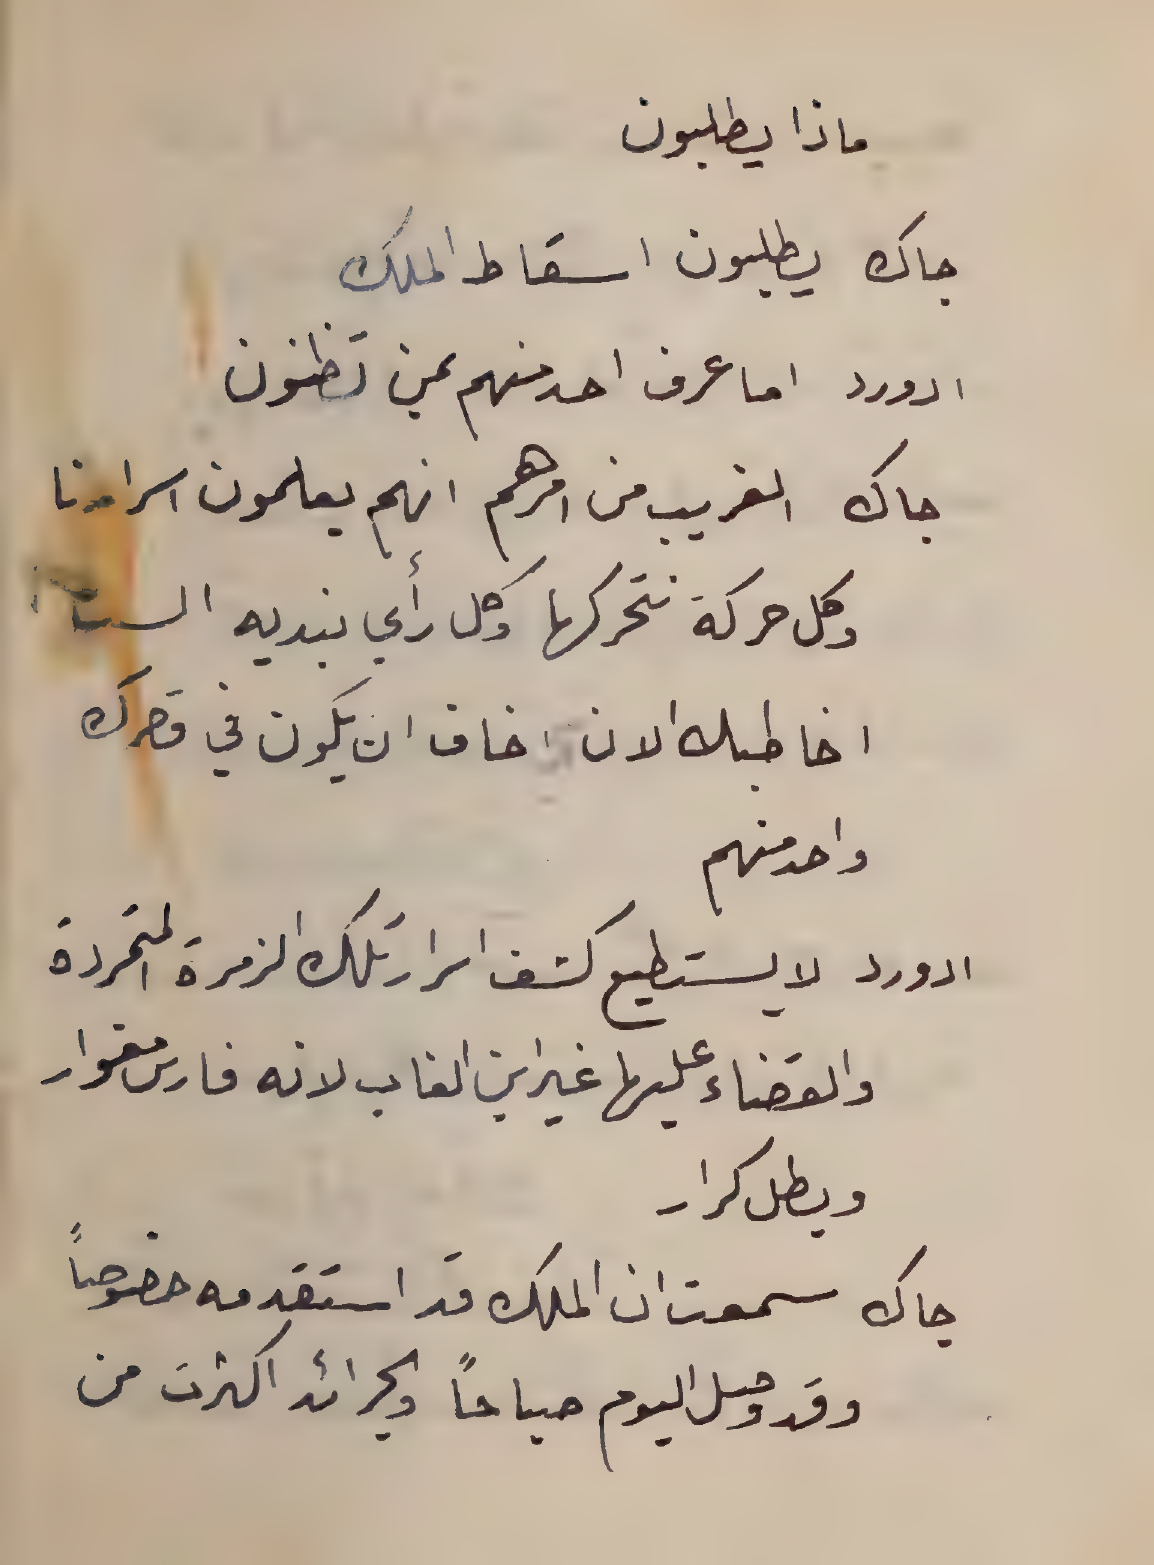 ماذا يطلبون
جاك يطلبون اسقاط الملك
ادورد اما عرف احد منهم بمن تظنون
جاك الغريب من امرهم انهم يعلمون اسرارنا
وكل حركة نتحركها وكل رأي نبديه الست انا
اخاطبك الان اخاف ان يكون في قصرك
واحد منهم
ادورد لا يستطيع كشف اسرار تلك الزمرة المتمردة
والقضاء عليها غير ابن الغاب لانه فارس مغوار
وبطل كرار
جاك سمعت ان الملك قد استقدمه خصوصاً
وقد وصل اليوم صباحاً والجرائد اكثرت من